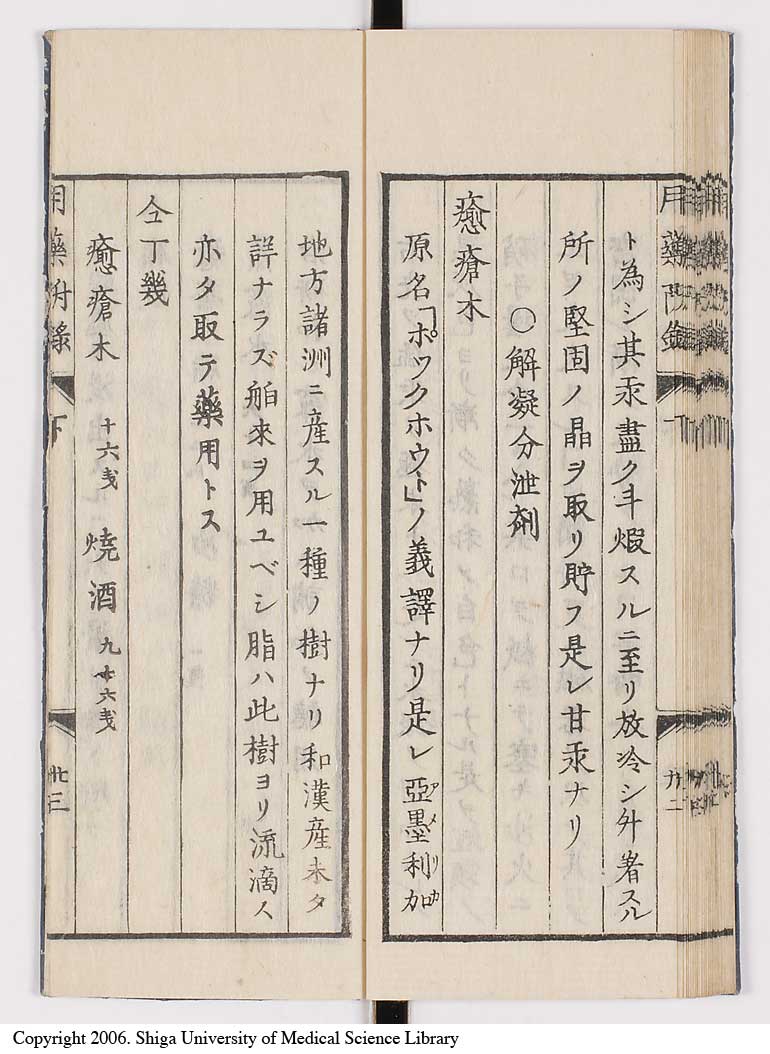 ト為シ其汞盡ク升煆スルニ至リ放冷シ外着スル
所ノ堅固ノ晶ヲ取リ貯フ是レ甘汞ナリ
〇解凝分泄剤
癒瘡木
原名「ポックホウト」ノ義譯ナリ是レ亞墨利加
アメリカ
地方諸洲ニ産スル一種ノ樹ナリ和漢産未タ
詳ナラズ舶來ヲ用ユベシ脂ハ此樹ヨリ流滴ス
亦タ取テ藥用トス
仝丁幾
癒瘡木 十六戔 焼酒 九十六戔
用藥附録 下 廿三
Copyright 2006. Shiga University of Medical Science Library